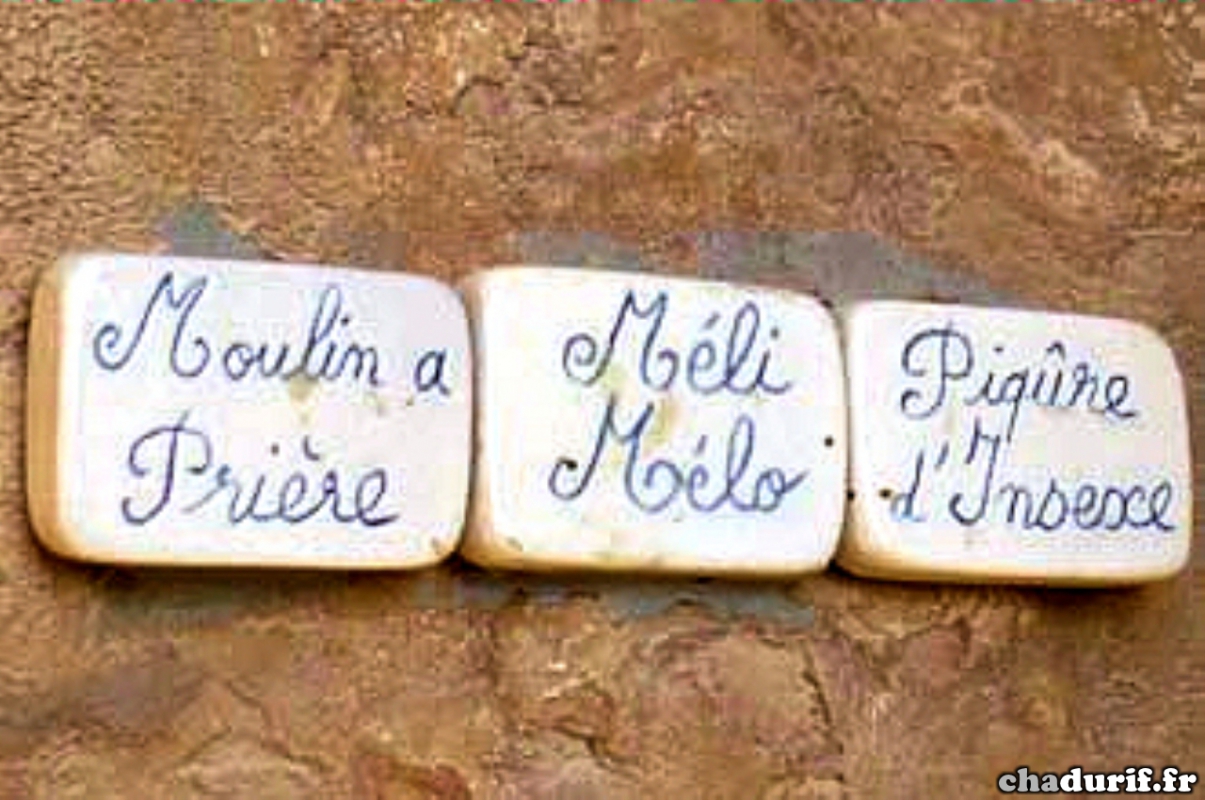 Moulin a
Prière
Méli
Mélo
Piqûre
d'Insexe
chadurif.fr